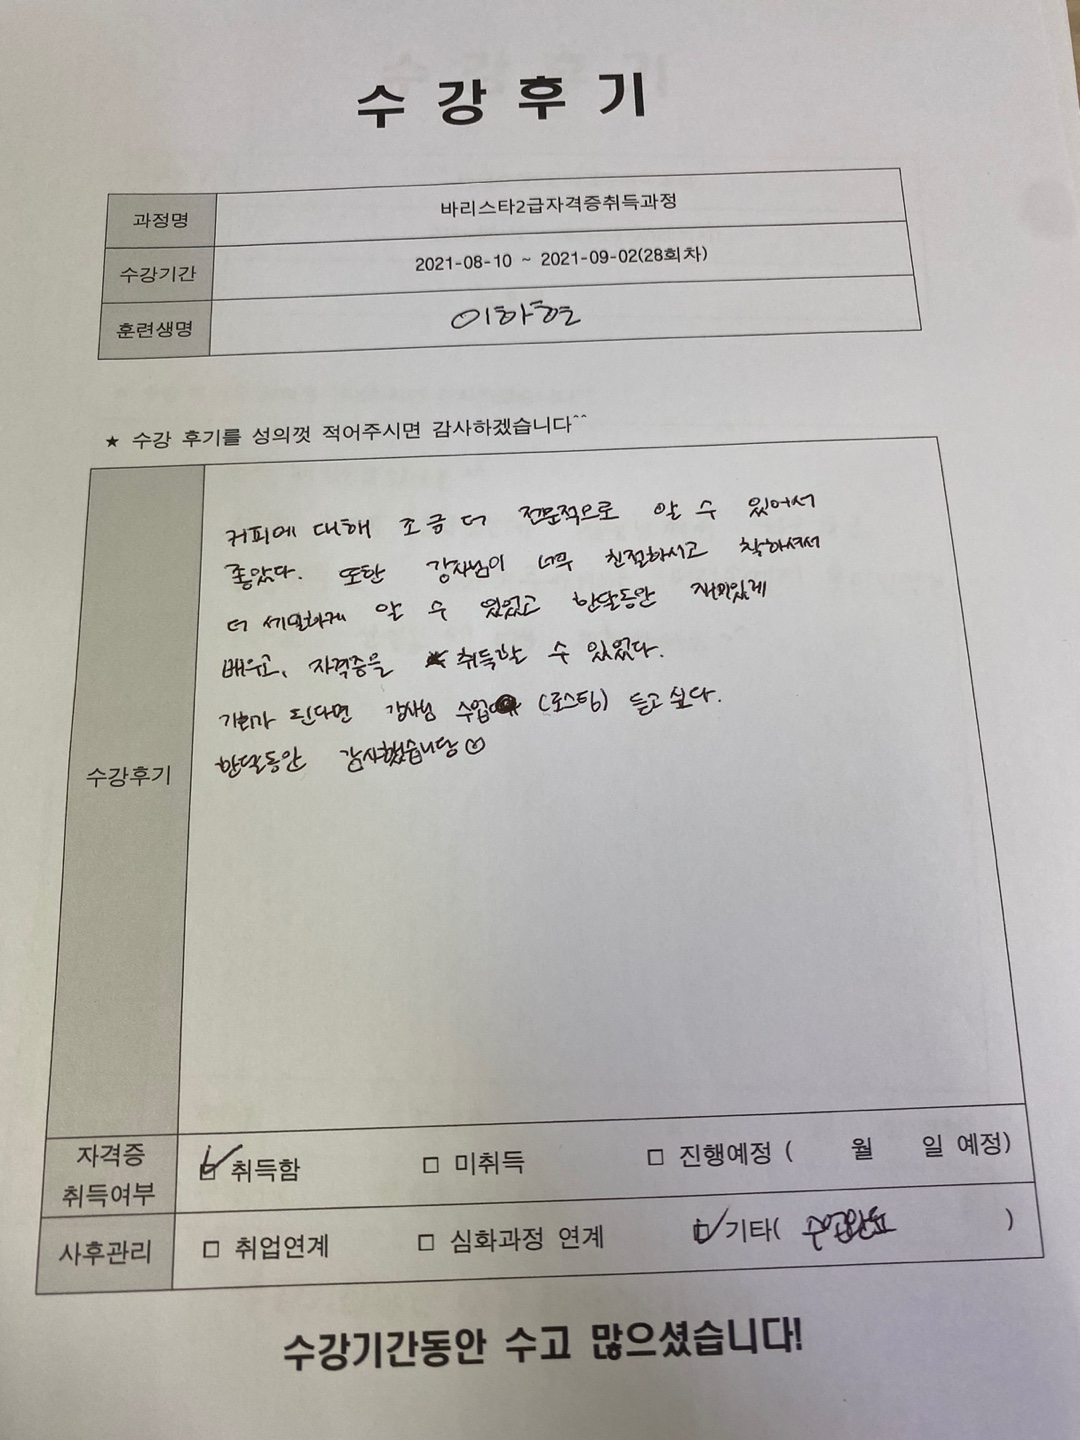 수 강 후 기
과정명 바리스타2급자격증취득과정
수강기간 2021-08-10 ~ 2021-09-02(28회차)
훈련생명 이하현
★ 수강 후기를 성의껏 적어주시면 감사하겠습니다^^
수강후기
커피에 대해 조금 더 전문적으로 알 수 있어서
좋았다. 또한 강사님이 너무 친절하시고 착하셔서
더 세밀하게 알 수 있었고 한달동안 재미있게
배우고, 자격증을 취득할 수 있었다.
기회가 된다면 강사님 수업 (로스팅) 듣고 싶다.
한달동안 감사했습니당
자격증 취득여부 취득함 □ 미취득 □ 진행예정 ( 월 일 예정)
사후관리 □ 취업연계 □ 심화과정 연계 기타( )
수강기간동안 수고 많으셨습니다!